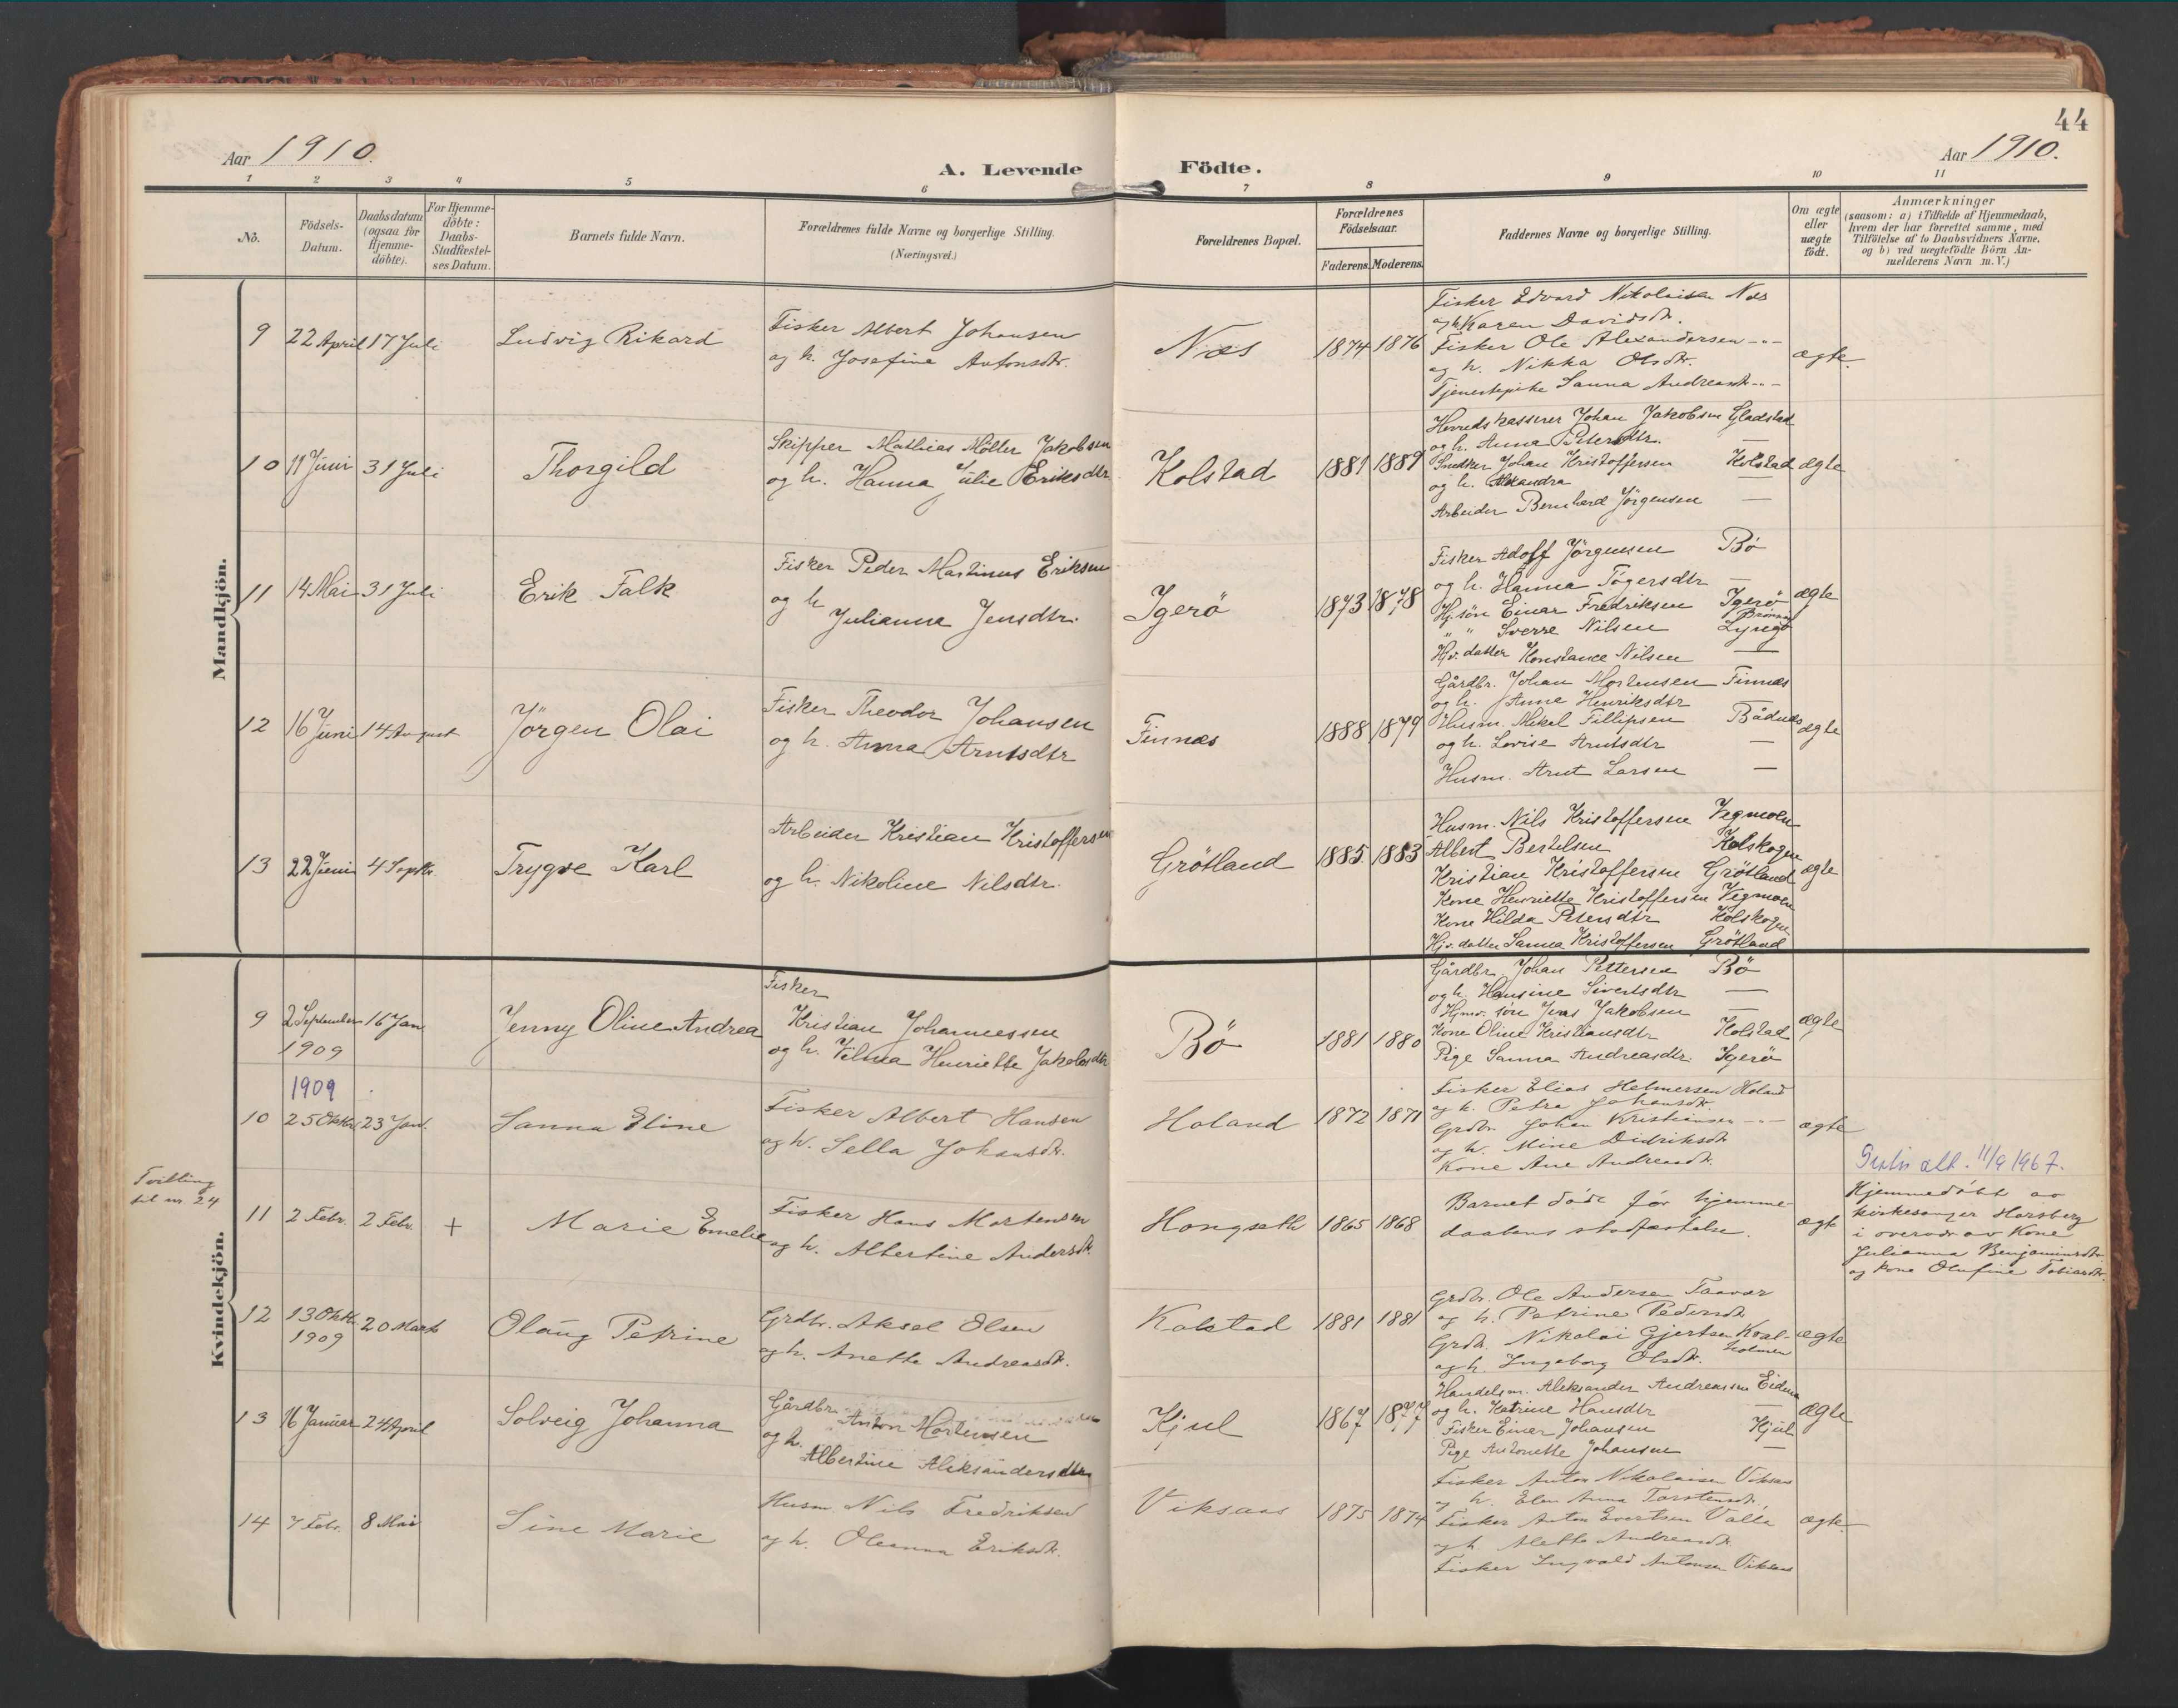 44
Aar 1910.
A. Levende Födte.
Aar 1910.
1 2 3 4 5 6 7 8 9 10 11
No.
Födsels-Datum.
Daabsdatum (ogsaa for Hjemme-döbte).
For Hjemme-döbte: Daabs-Stadfestel-ses Datum.
Barnets fulde Navn.
Forældrenes fulde Navne og borgerlige Stilling.
(Næringsvei.)
Forældrenes Bopæl.
Forældrenes Födselsaar.
Faderens. Moderens.
Faddernes Navne og borgerlige Stilling.
Om ægte eller uægte födt.
Anmærkninger
(saasom: a) i Tilfælde af Hjemmedaab,
hvem der har forrettet samme, med
Tilföielse af to Daabsvidners Navne,
og b) ved uegtefödte Börn An-
melderens Navn m. V.)
Mandkjön.
9 22 April 17 Juli Ludvig Rikard
Fisker Albert Johansen
og h. Josefine Antonsdtr.
Næs 1874 1876
Fisker Edvard Nikolaisen Næs
og h. Karen Davidsdtr.
Fisker Ole Alexandersen -"-
og h. Nikka Olsdtr.
Tjenestepike Sanna Andreasdtr -"-
ægte.
10 11 Juni 31 Juli Thorgild
Skipper Mathias Möller Jakobsen
og h. Hanna Julie Eriksdtr
Kolstad 1881 1889
Herredskasserer Johan Jakobsen Gladstad
og h. Anna Petersdtr. —
Snedker Johan Kristoffersen Kolstad
og h. Alexandra —
Arbeider Bernhard Jörgensen —
ægte
11 14 Mai 31 Juli Erik Falk
Fisker Peder Martinus Eriksen
og h
Julianna Jensdtr.
Igerö 1873 1878
Fisker Adolf Jörgensen Bö
og h. Hanna Togersdtr —
Hj. sön Einar Fredriksen Igerö
" " Sverre Nilsen Brönnö Lyngö
Hv. datter Konstance Nilsen —
ægte
12 16 Juni 14 August Jörgen Olai
Fisker Theodor Johansen
og h. Anna Arntsdtr
Finnæs 1888 1879
Gårdbr. Johan Mortensen Finnæs
og h. Anne Henriksdtr
Husm. Mikal Fillipsen Bådnes
og h. Lovise Arntsdtr —
Husm. Arnt Larsen —
ægte
13 22 Juni 4 Septbr. Trygve Karl
Arbeider Kristian Kristoffersen
og h. Nikoline Nilsdtr.
Grötland 1885 1883
Husm. Nils Kristoffersen Vegmoen
Albert Bertelsen Kolskogen
Kristian Kristoffersen Grötland
Kone Henriette Kristoffersen Vegmoen
Kone Hilda Petersdtr Kolskogen
Hj. datter Sanna Kristoffersen Grötland
ægte
Kvindekjön.
9 2 September 1909 16 Jan. Jenny Oline Andrea
Fisker
Kristian Johannessen
og h. Vilma Henriette Jakobsdtr
Bö 1881 1880
Gårdbr. Johan Pettersen Bö
og h. Hansine Sivertsdtr —
Hjmv. sön Jens Jakobsen —
Kone Oline Kristiansdtr. Kolstad
Pige Sanna Andreasdtr. Igerö
ægte
1909
10 25 Oktbr. 23 Jan. Sanna Eline
Fisker Albert Hansen
og h. Sella Johansdtr.
Holand 1872 1871
Fisker Elias Helmersen Holand
og h. Petra Johansdtr.
Grdbr. Johan Kristiansen -"-
og h. Mine Didriksdtr
Kone Ane Andreasdtr.
ægte
Tvilling
til nr. 24
11 2 Febr. 2 Febr. + Marie Emelie
Fisker Hans Mortensen
og h. Albertine Andersdtr.
Hongseth 1865 1868
Barnet döde för hjemme-
daabens stadfæstelse.
ægte
alt. 11/9 1967.
Hjemmedöbt av
kirkesanger Horsberg
i overvær av Kone
Julianna Benjaminsdtr
og kone Olufine Tobiasdtr.
12 13 Oktbr. 1909 20 Marts Olaug Petrine
Grdbr. Aksel Olsen
og h. Anette Andreasdtr.
Kolstad 1881 1881
Grdbr. Ole Andersen Taavær
og h. Petrine Pedersdtr
Grdbr. Nikolai Gjertsen Kval-
holmen
og h. Ingeborg Olsdtr.
ægte
13 16 Januar 24 April Solveig Johanna
Gårdbr.
Anton Mortensen
og h.
Albertine Aleksandersdtr
Kjul 1867 1877
Handelsm. Aleksander Andreassen Eidem
og h. Katrine Hansdtr —
Fisker Einar Johansen Kjul
Pige Antonette Johansen —
ægte
14 7 Febr. 8 Mai Sine Marie
Husm Nils Fredriksen
og h. Oleanna Eriksdtr.
Viksaas 1875 1874
Fisker Anton Nikolaisen Viksaas
og h. Elen Anna Torstensdtr.
Fisker Anton Evertsen Valla
og h. Aletta Andreasdtr.
Fisker Ingvald Antonsen Viksaas
ægte.